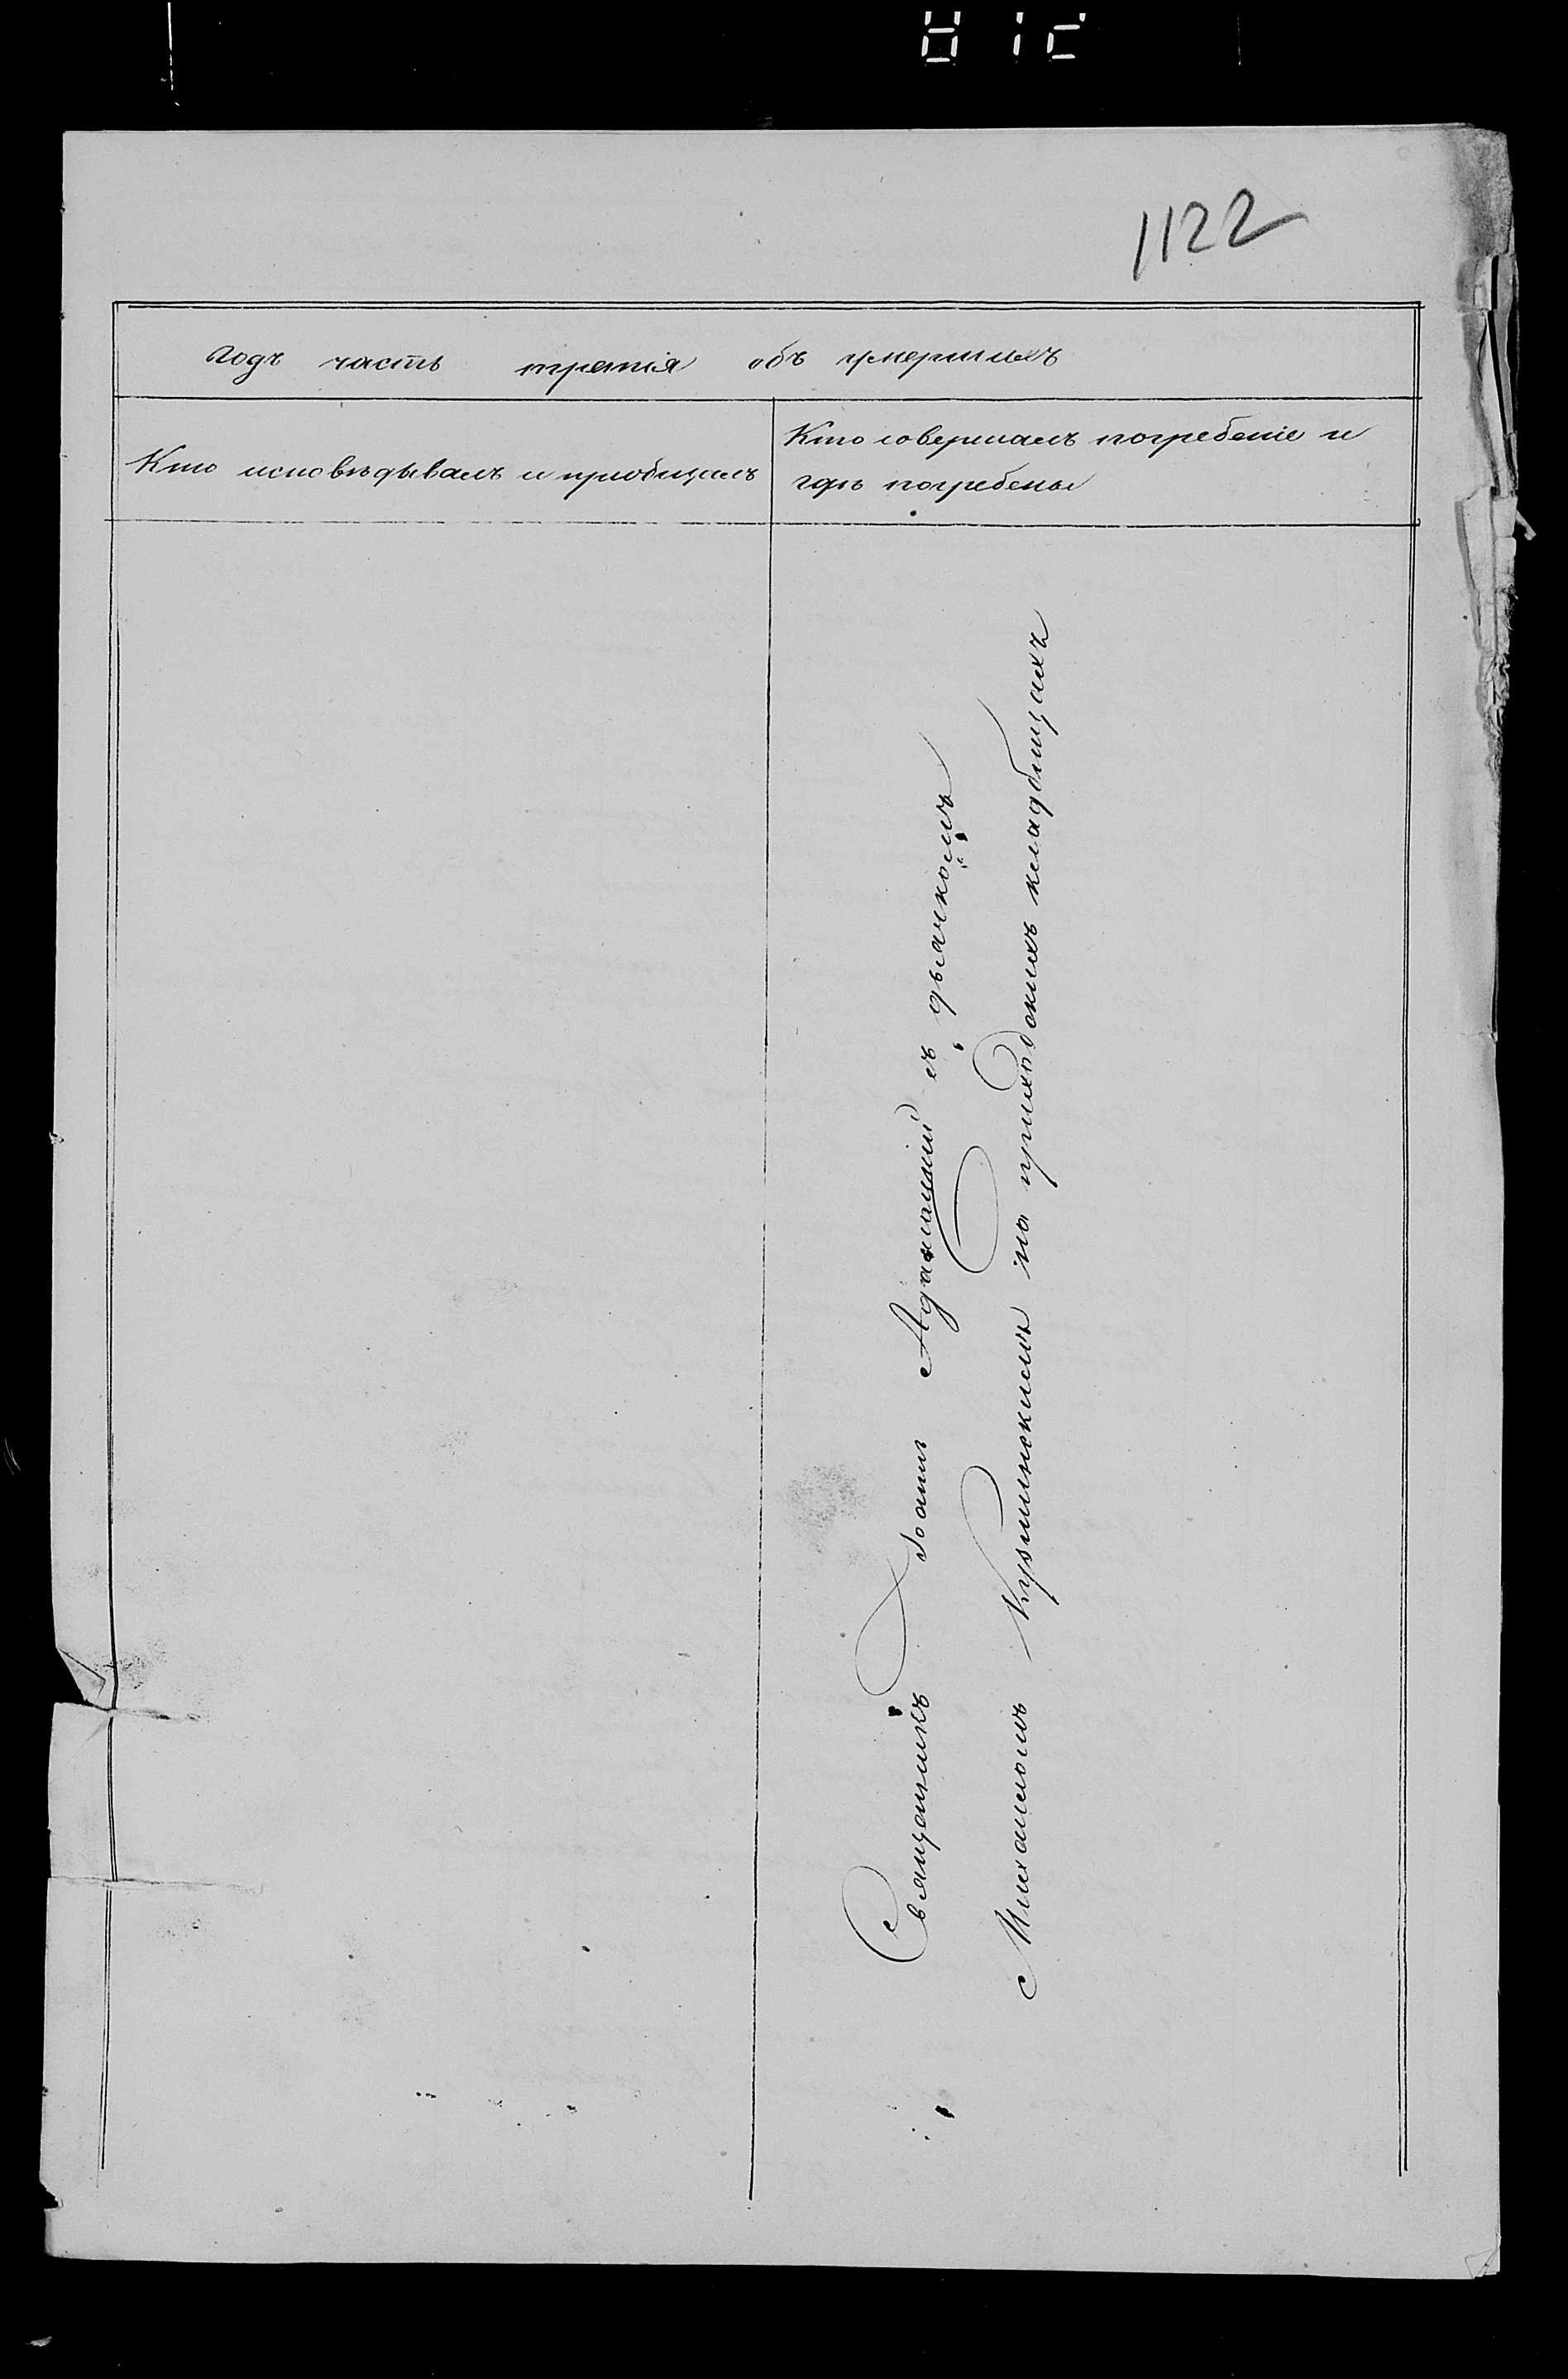 1122
Годъ часть третія объ умершихъ
Кто исповѣдывалъ и пріобщалъ
Кто совершалъ погребеніе и
гдѣ погребены
Священникъ Іоаннъ съ дьячкомъ
Михаиломъ Кузминскимъ на приходскихъ кладбищахъ